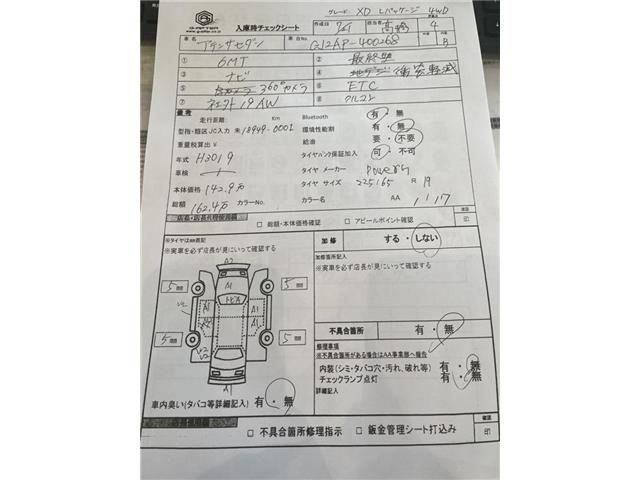 グレード XD Lパッケージ 4WD
G-AFTER
www.g-after.co.jp
入庫時チェックシート
作成日 7/21 担当者 髙橋 4
車名 アテンザセダン 車台No. GJ2AP-400268 内装 B
① 6MT ② 最終型
③ ナビ ④ 地デジ 衝突軽減
⑤ 360°カメラ ⑥ ETC
⑦ 19AW ⑧ クルコン
備考
走行距離 Km Bluetooth 有・無
型指・類区JC入力 未 18949-0001 環境性能割 有・無
重量税算出 ¥ 給油 要・不要
年式 H30 9 タイヤパンク保証加入 可・不可
車検 タイヤ メーカー
本体価格 142.9万 タイヤ サイズ 225/65 R 19
総額 162.4万 カラーNo. カラー名 AA 1 / 17
□ 総額・本体価格確認 □ アピールポイント確認 確認 印
※タイヤは㎜表記
※実車を必ず店長が見にいって確認する
A2
5 ㎜ A1 5 ㎜
トビA
A1 A1
5 ㎜ 5 ㎜
A1
車内臭い(タバコ等詳細記入) 有・無
加修 する・しない
加修箇所記入
※実車を必ず店長が見にいって確認する
不具合箇所 有・無
修理事項
※不具合箇所がある場合はAA事業部へ報告
内装(シミ・タバコ穴・汚れ、破れ等) 有・無
チェックランプ点灯 有・無
詳細記入
□ 不具合箇所修理指示 □ 鈑金管理シート打込み 確認 印